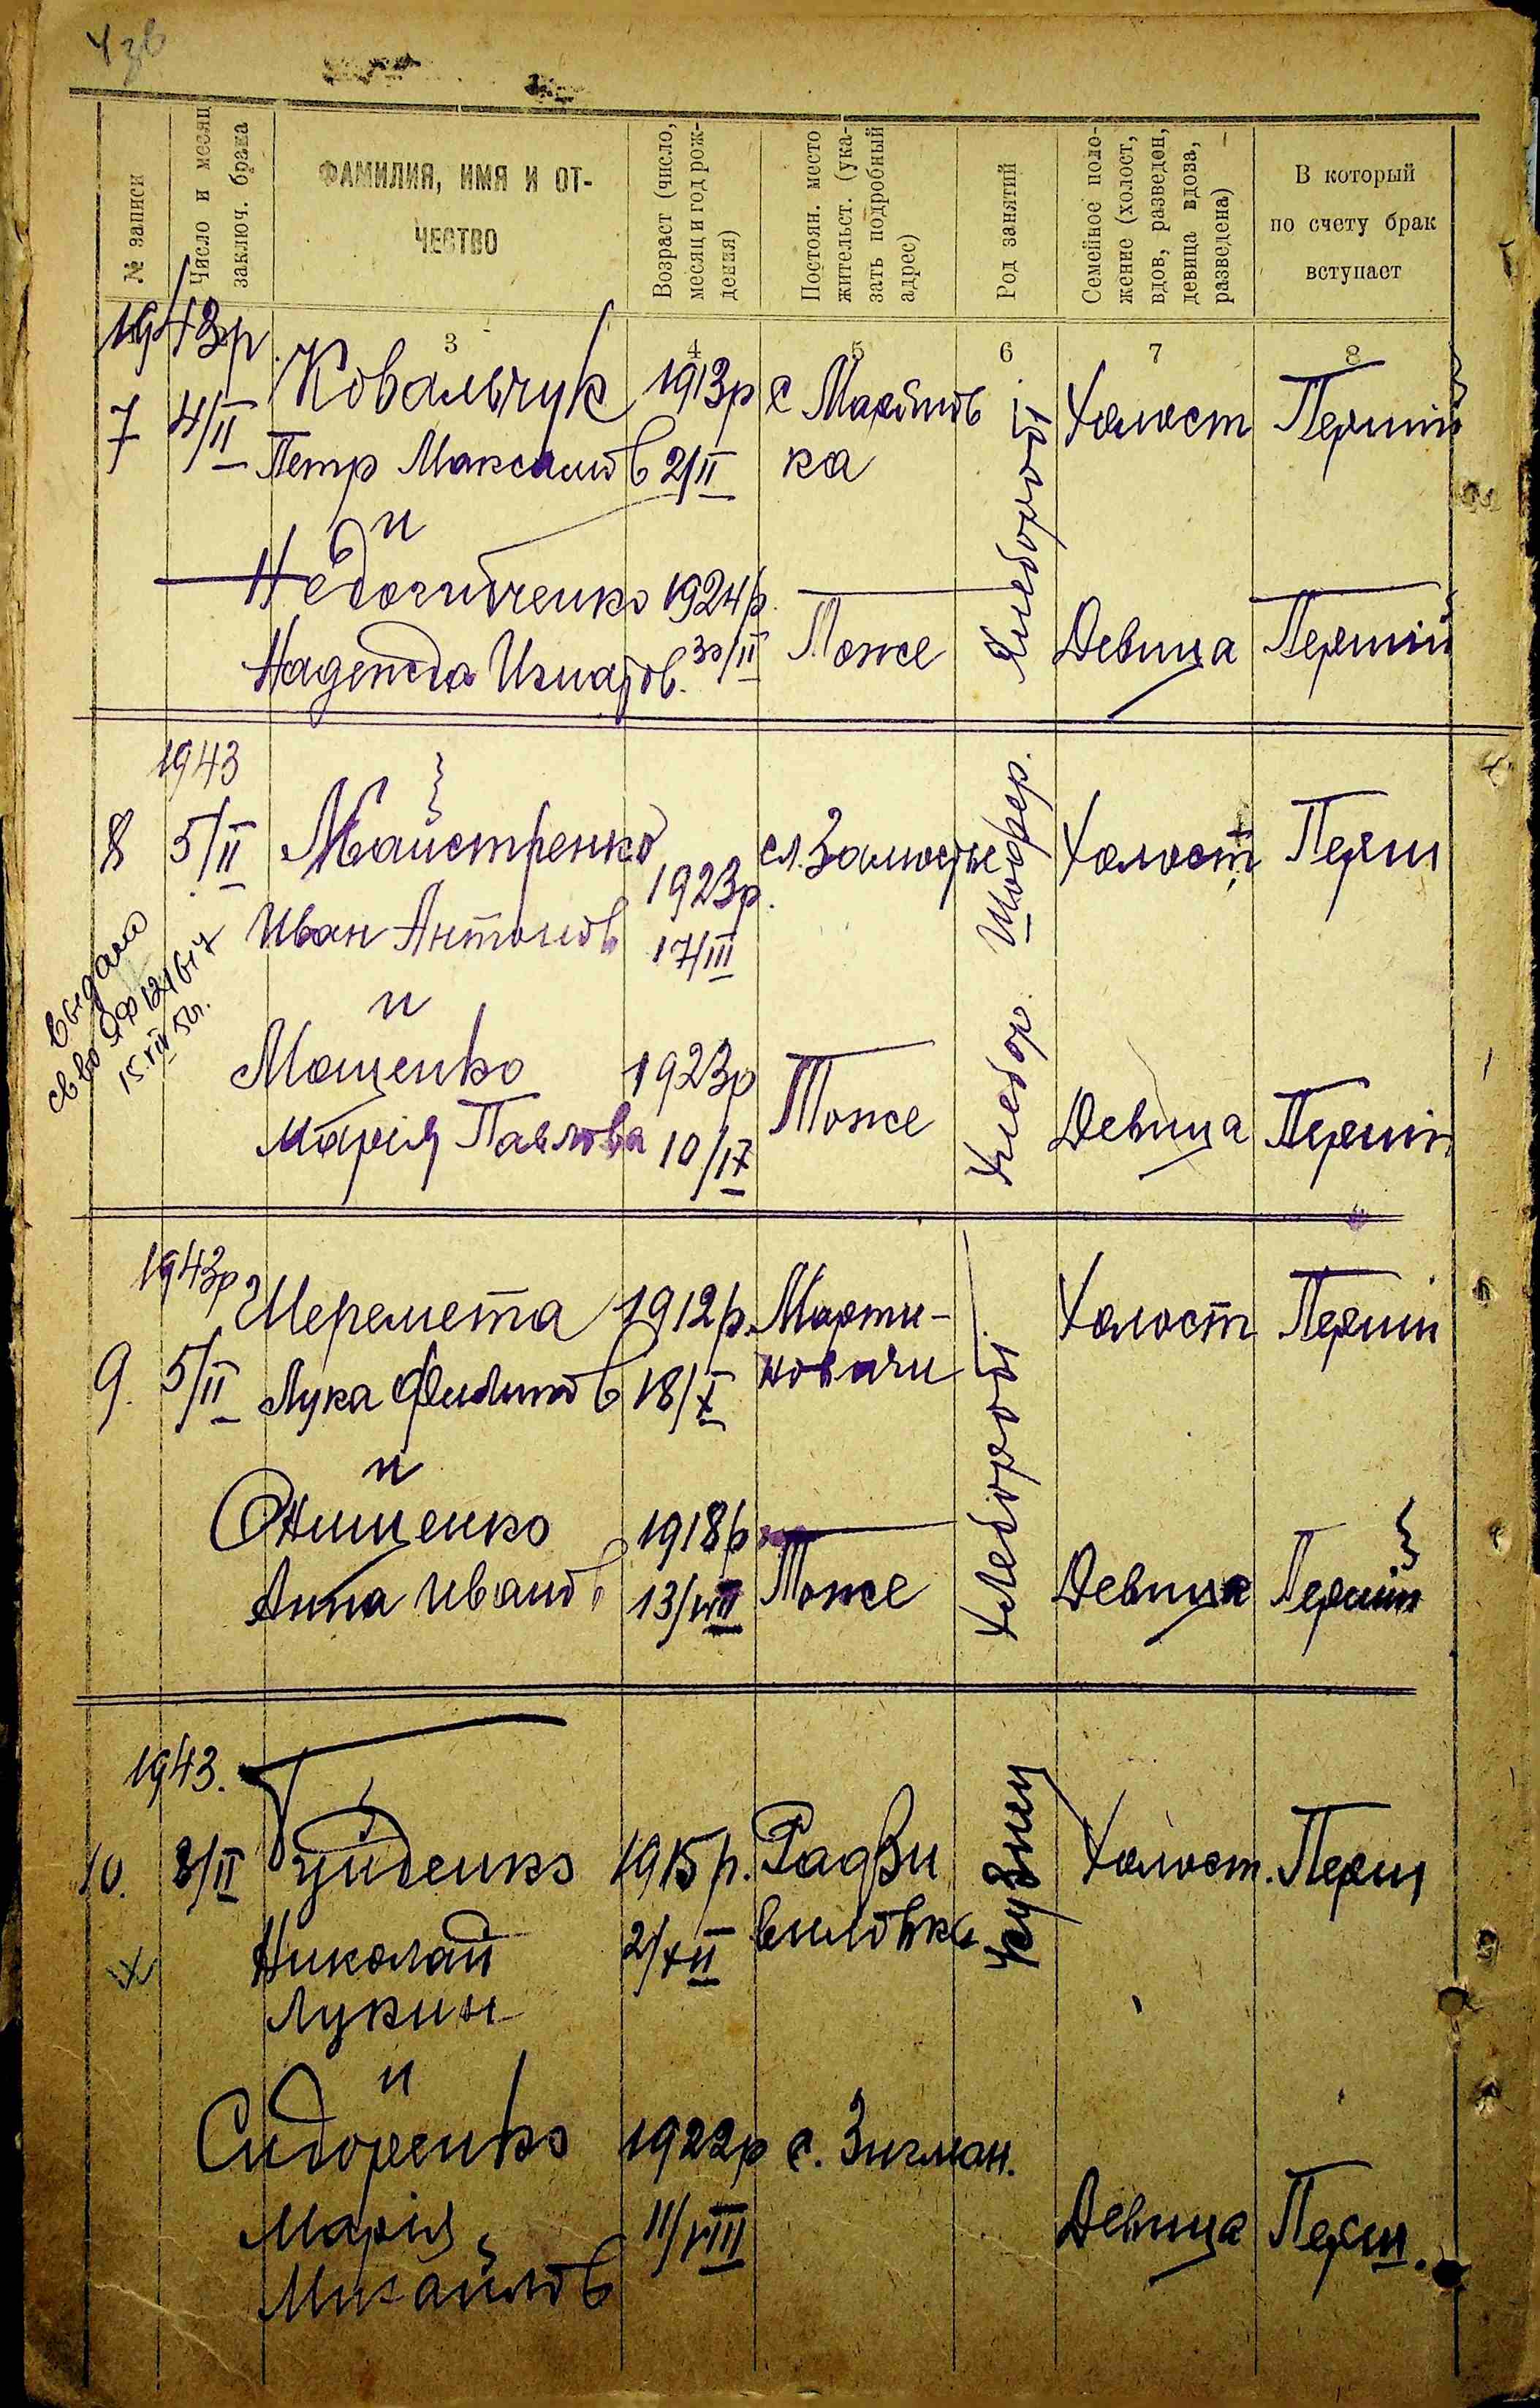 № записи
Число и месяц
заключ. брака
ФАМИЛИЯ, ИМЯ И ОТ-
ЧЕСТВО
Возраст (число,
месяц и год рож-
дения)
Постоян. место
жительст. (ука-
зать подробный
адрес)
Род занятий
Семейное поло-
жение (холост,
вдов, разведен,
девица вдова,
разведена)
В который
по счету брак
вступает
3 4 5 6 7 8
1943р.
7 4/II Ковальчук 1913р с Холост Перший
Петр Максимов 2/II ка
и
Хлебороб
1924р.
Надежда Игнатов. 30/II Тоже Девица Перший
1943
8 5/II Майстренко сл. Замостье Шофер. Холост Перш
1923р.
Иван Антонов 17/III
Выдано
св во ЯФ 121617
15.VII 50г.
и
Мащенко 1923р Тоже Хлебор. Девица Перший
Марія Павлова 10/IX
1943р
Шеремета 1912р. Марти- Холост Перший
9. 5/II Лука Филипов 18/X новичи
Хлебороб
и
Онищенко 1918р
Анна Иванов 13/VIII Тоже Девица Перший
1943.
10. 8/II Гуйденко 1915р. Радзи Кузнец Холост. Перш
Николай 2/XII виловка
Лукич
и
Сидоренко 1922р с. Зигман.
Марія 11/VIII Девица Перш.
Михайлов